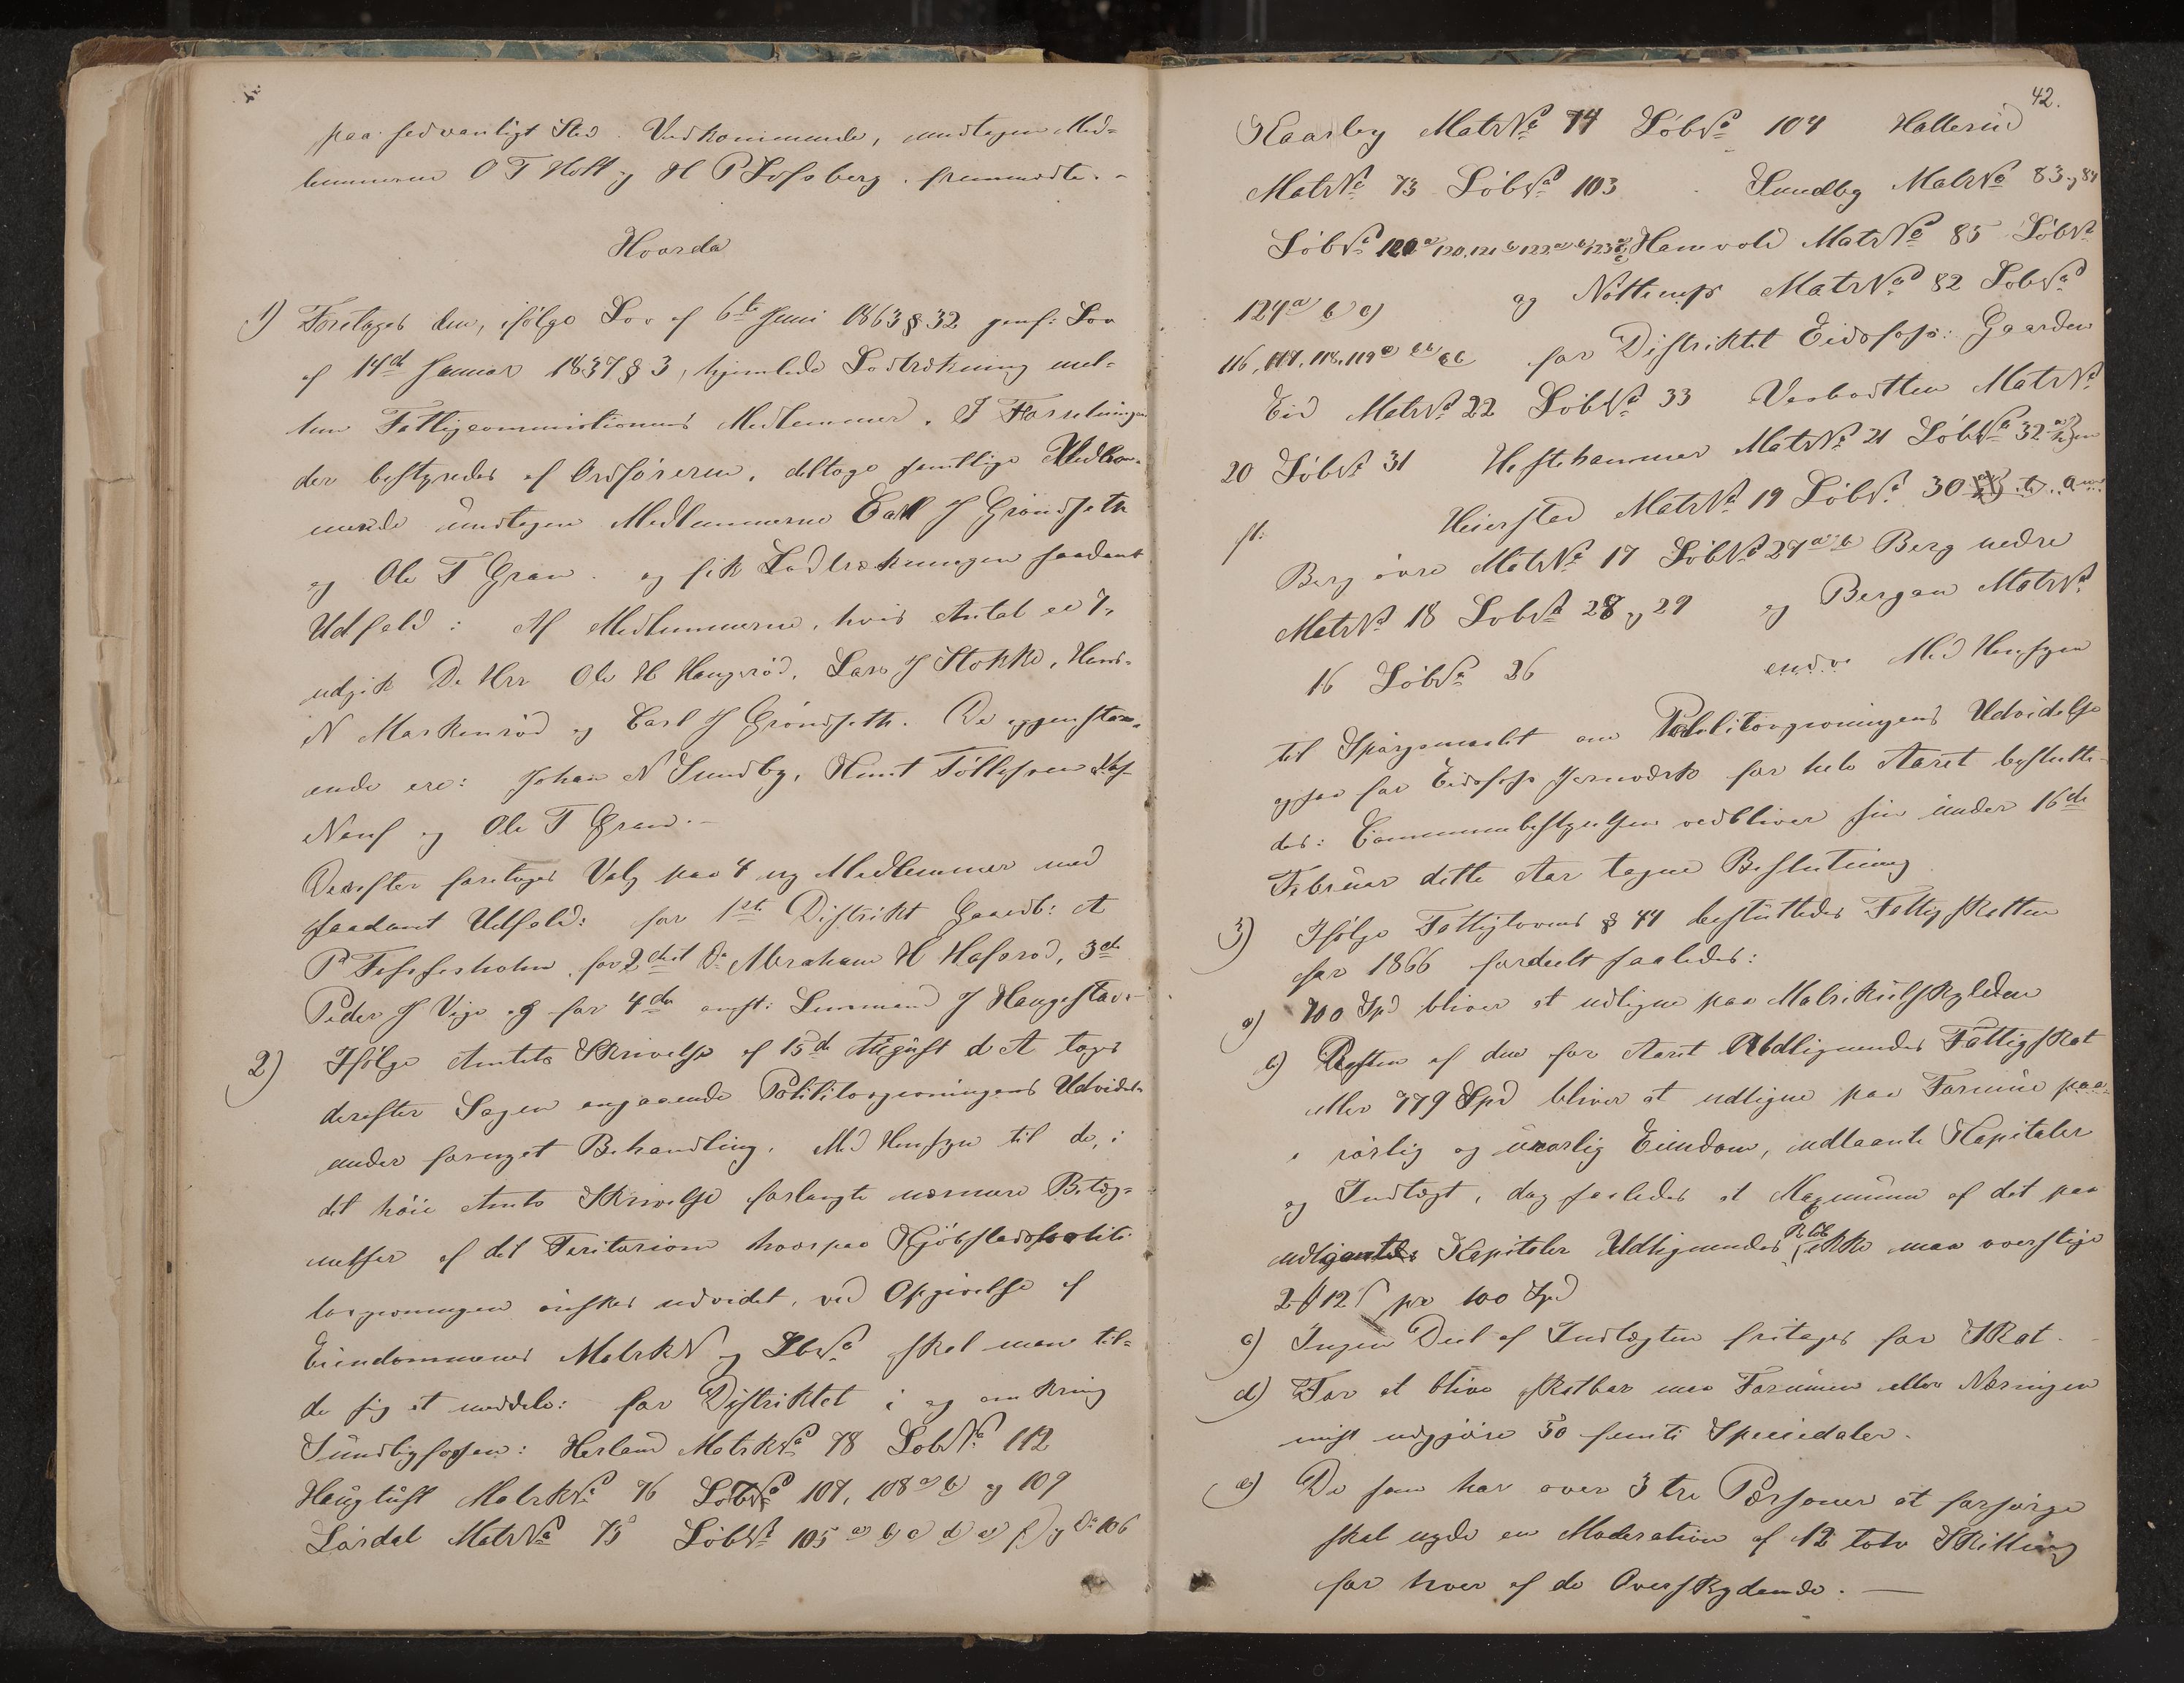 paa sedvanligt Sted. Vedkommende, undtagen Med-
lemmerne O T Holt og H P Fosberg. fremmødte. -
Hvorda
1) Foretoges den, ifølge Lov af 6te Juni 1863 § 32 jenf: Lov
af 14de Januar 1837 § 3, hjemlede Lodtrækning mel-
lem Fattigcommissionens Medlemmer. I Forretningen
der bestyredes af Ordføreren, deltoge samtlige Vedkom-
mende undtagen Medlemmerne Carl J Grøndseth
og Ole T Gran. og fik Lodtrækningen saadant
Udfald: Af Medlemmerne, hvis Antal er 7,
udgik De Hrr Ole H Haugerød, Lars J Stokke, Hans
N Markenrød og Carl J Grøndseth. De gjenstaa-
ende ere: Johan N Sundby, Knut Tollefsen
og Ole T Gran. -
Derefter foretoges Valg paa 4 ny Medlemmer med
saadant Udfald: for 1ste Distrikt Gaardb: A
P for 2det Do Abraham H Hafsrød, 3de
Peder J Vige og for 4de Lensmand J Haugestad -
2) Ifølge Amtets Skrivelse af 15de August d A toges
derefter Sagen angaaende Politilovgivningens Udvidelse
under fornyet Behandling. Med Hensyn til de, i
det høie Amts Skrivelse forlangte nærmere Beteg-
nelser af det Teritorium hvorpaa Kjøbstadspoliti
lovgivningen ønskes udvidet, ved Opgivelse af
Eiendommenes MatrkN og LbNo skal man til-
de sig at meddele: for Distriktet i og omkring
Sundbyfossen: Herland MatrkNo 78 LøbNo 112
Haugtuft MatrkNo 76 LøbNo 107, 108 a) b) og 109
Lørdal MatrNo 75 LøbNo 105 a) b) c) d) e) f) og Do 106
42.
Kaasby MatrNo 74 LøbNo 104 Hallerud
MatrNo 73 LøbNo 103 Sundby MatrNo 83 og 84
LøbNo 120 a) 120, 121 b 122 a) b) 123 Hamvold MatrNo 85 LøbNo
124 a) b) c) og MatrNo 82 LøbNo
116, 117, 118, 119 for Distriktet Eidsfoss: Gaarden
Eid MatrNo 22 LøbNo 33 Vesbotten MatrNo
20 LøbNo 31 Hestehammer MatrNo 21 LøbNo 32
Heierstad MatrNo 19 LøbNo 30
Berg øvre MatrNo 17 LøbNo 27 a b Berg nedre
MatrNo 18 LøbNo 28 og 29 og Bergan MatrNo
16 LøbNo 26 Med Hensyn
til Spørgsmaalet om Politilovgivningens Udvidelse
ogsaa for Eidsfoss Jernværk for hele Aaret beslutte-
des: Communebestyrelsen vedbliver sin under 16de
Februar dette Aar tagne Beslutning
3) Ifølge Fattiglovens § 44 besluttedes Fattigskatten
for 1866 fordeelt saaledes:
a) 700 Spd bliver at udligne paa Matrikulskylden
b) Resten af den for Aaret Udlignendes Fattigskat
eller 779 Spd bliver at udligne paa Formue paa
i rørlig og urørlig Eiendom, udlaante Kapitaler
og Indtægt, dog saaledes at Maximum af det paa
Kapitaler Udlignendes Beløb ikke maa overstige
2 # 12 s pr 100 Spd
c) Ingen Deel af Indtægten fritages for Skat. -
d) For at blive skatbar maa Formuen eller Næringen
mist udgjøre 50 femti Speciedaler.
e) De som har over 3 tre Personer at forsørge
skal nyde en Moderation af 12 tolv Skilling
for hver af de Overskydende. —